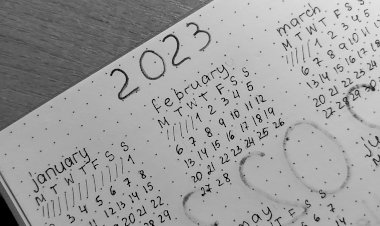 2023
january
M T W T F S S
/ / / / / / 1
3 4 5 6 7 8
11 12 13 14 15
19 20 21 22
28 29
february
M T W T F S S
/ / 1 2 3 4 5
6 7 8 9 10 11 12
13 14 15 16 17 18 19
20 21 22 23 24 25 26
27 28
march
M T W T F S
/ / 1 2 3 4
6 7 8 9 10 11
13 14 15 16 17 18
20 21 22 23 24
27 28 29 30
may
T F S S